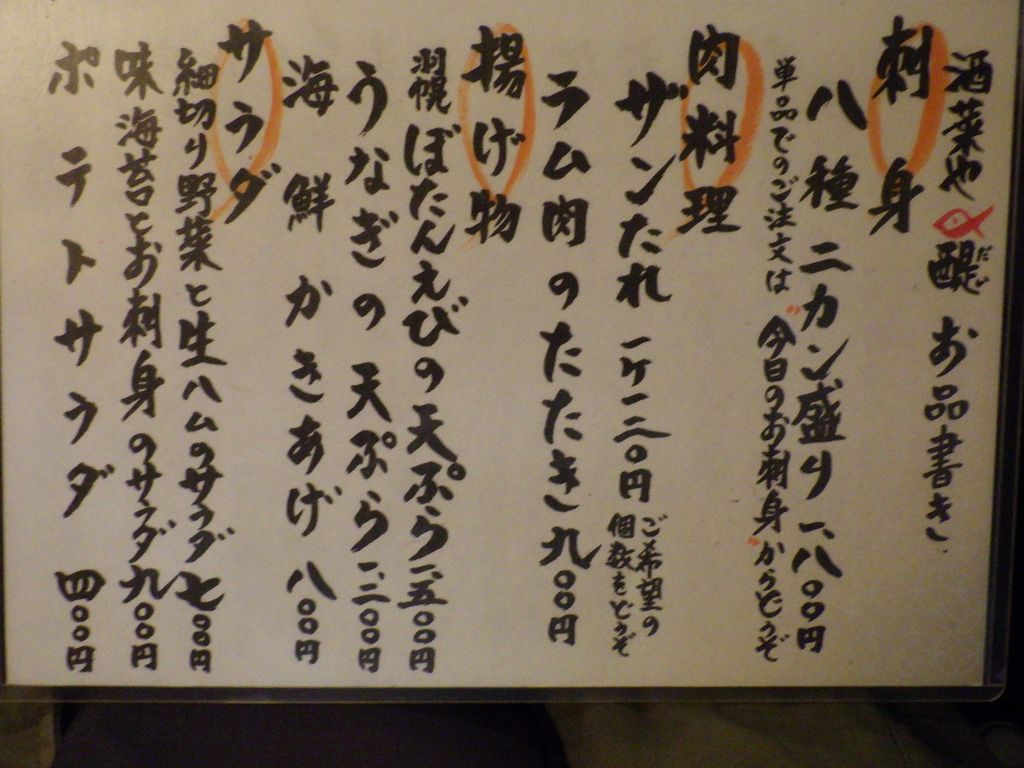 酒菜や 醍 だご お品書き
刺身
八種 二カン盛り 一、八〇〇円
単品でのご注文は "今日のお刺身"からどうぞ
肉料理
ザンたれ 一ケ 二三〇円 ご希望の個数をどうぞ
ラム肉のたたき 九〇〇円
揚げ物
羽幌ぼたんえびの天ぷら 一、五〇〇円
うなぎの天ぷら 一、二〇〇円
海鮮かきあげ 八〇〇円
サラダ
細切り野菜と生ハムのサラダ 七〇〇円
味海苔とお刺身のサラダ 九〇〇円
ポテトサラダ 四〇〇円